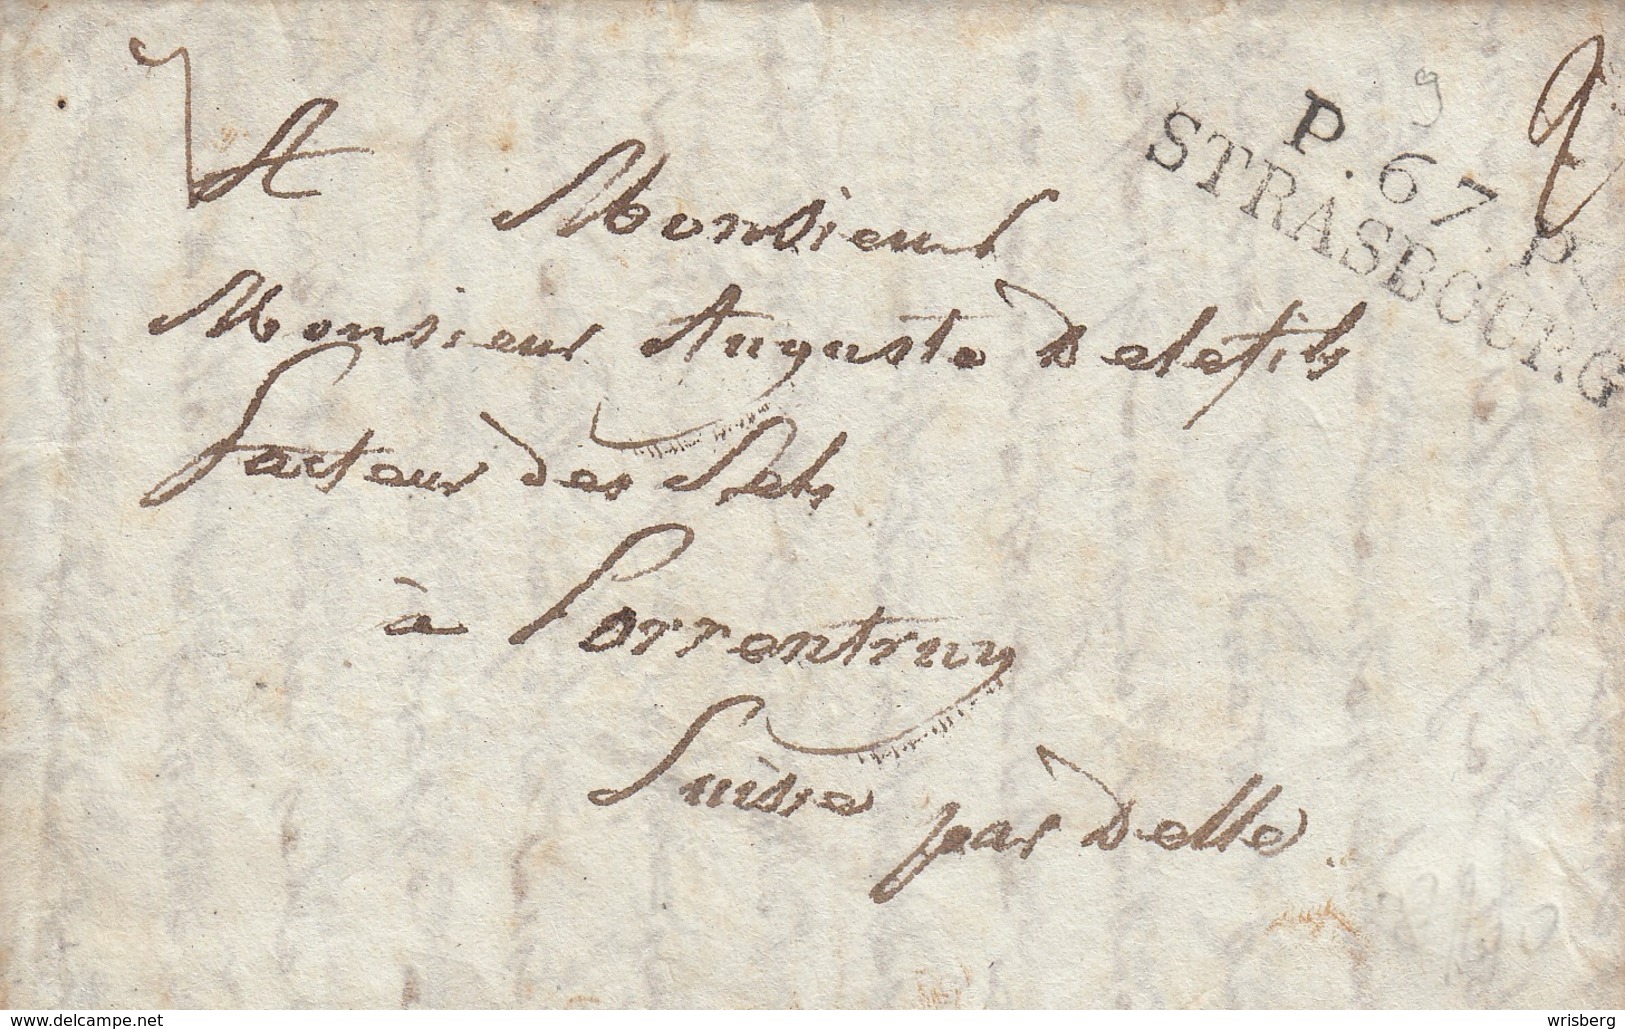 9
P. 67. P.
STRASBOURG
A Monsieur
Monsieur Auguste Delefils
facteur des Sels
à Porrentruy
Suisse par Delle
www.delcampe.net
wrisberg